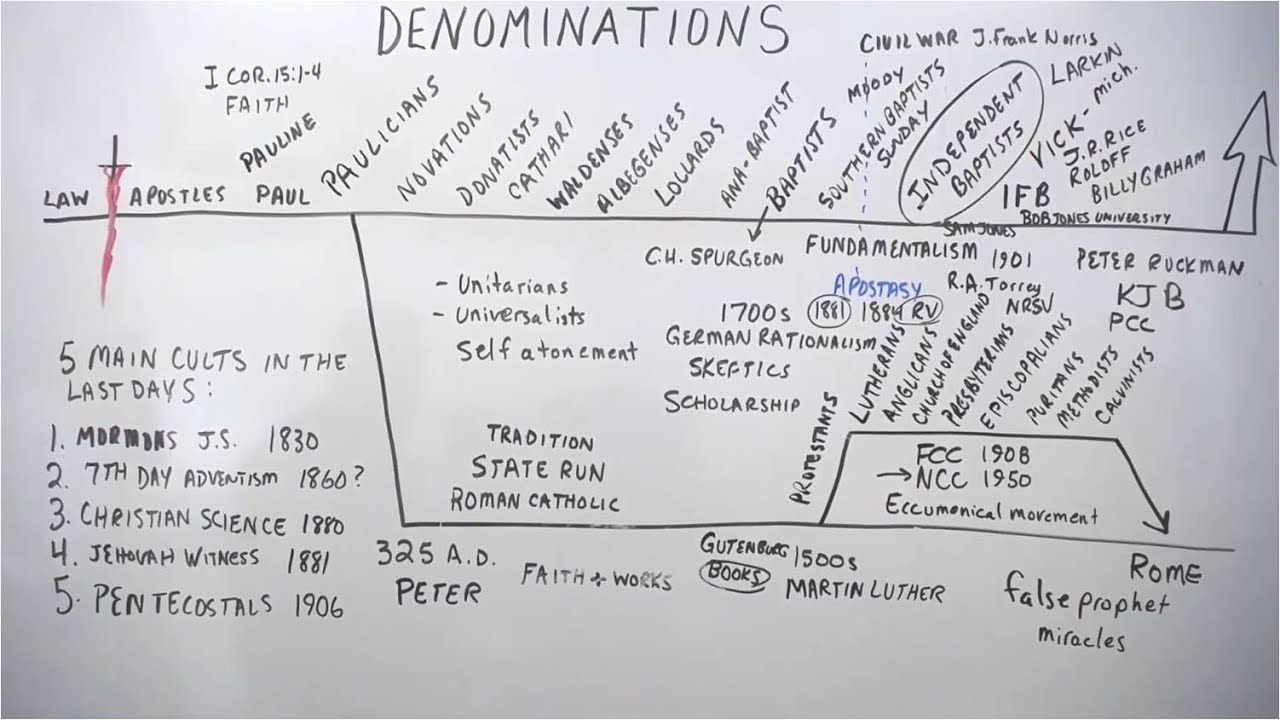 DENOMINATIONS
I COR. 15:1-4
FAITH
LAW
APOSTLES
PAULINE
PAUL
PAULICIANS
NOVATIONS
DONATISTS
CATHARI
WALDENSES
ALBEGENSES
LOLLARDS
ANA-BAPTIST
BAPTISTS
CIVIL WAR J. Frank Norris
MOODY
SOUTHERN BAPTISTS
SUNDAY
INDEPENDENT
BAPTISTS
LARKIN
VICK - mich.
J.R. RICE
ROLOFF
BILLY GRAHAM
IFB
BOB JONES UNIVERSITY
SAM JONES
C.H. SPURGEON
FUNDAMENTALISM 1901
PETER RUCKMAN
KJB
PCC
APOSTASY
R.A. Torrey
NRSV
1700s
1881 1884 RV
GERMAN RATIONALISM
SKEPTICS
SCHOLARSHIP
- Unitarians
- Universalists
Self atonement
TRADITION
STATE RUN
ROMAN CATHOLIC
PROTESTANTS
LUTHERANS
ANGLICANS
CHURCH OF ENGLAND
PRESBYTERIANS
EPISCOPALIANS
PURITANS
METHODISTS
CALVINISTS
FCC 1908
→ NCC 1950
Eccumonical movement
5 MAIN CULTS IN THE
LAST DAYS:
1. MORMONS J.S. 1830
2. 7TH DAY ADVENTISM 1860?
3. CHRISTIAN SCIENCE 1880
4. JEHOVAH WITNESS 1881
5. PENTECOSTALS 1906
325 A.D.
PETER
FAITH + WORKS
GUTENBURG
BOOKS
1500s
MARTIN LUTHER
ROME
false prophet
miracles